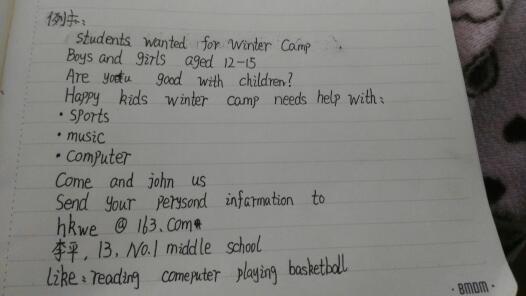 例示：
Students wanted for Winter Camp
Boys and girls aged 12-15
Are you good with children?
Happy kids winter camp needs help with:
• sports
• music
• computer
Come and john us
Send your perysond infarmation to
hkwe @ 163.com
李平, 13, No.1 middle school
Like: reading comeputer playing basketball
·BMDM·